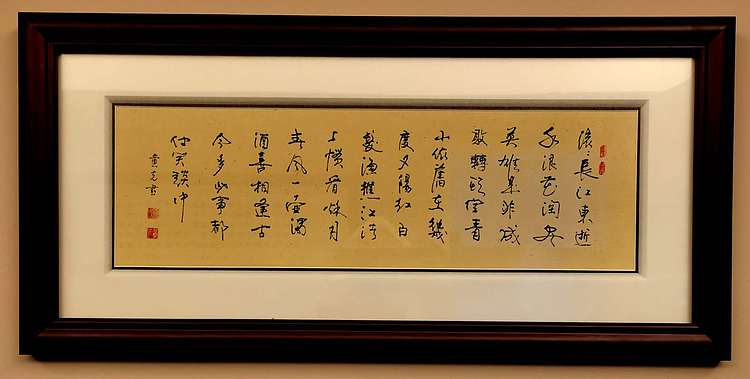 滚々長江東逝
水浪花淘尽
英雄是非成
敗轉頭空青
山依舊在幾
度夕陽红白
髮渔樵江渚
上慣看秋月
春風一壶濁
酒喜相逢古
今多少事都
付笑談中